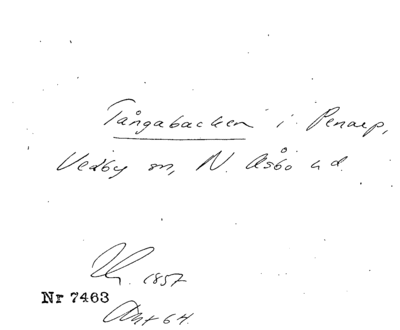 Tångabacken i Penarp,
Vedby sn, N. Åsbo hd.
1857
Nr 7463